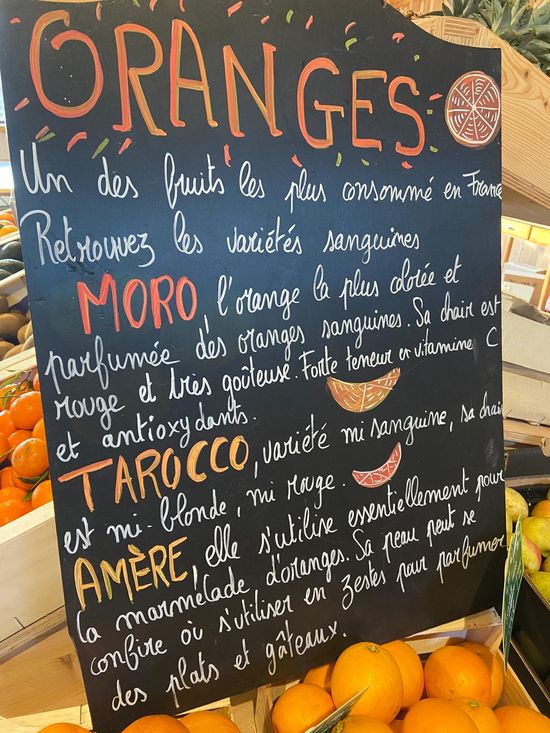 ORANGES
Un des fruits les plus consommé en France
Retrouvez les variétés sanguines
MORO, l'orange la plus colorée et
parfumée des oranges sanguines. Sa chair est
rouge et très goûteuse. Forte teneur en vitamine C
et antioxydants.
TAROCCO, variété mi sanguine, sa chair
est mi-blonde, mi rouge.
AMÈRE, elle s'utilise essentiellement pour
la marmelade d'oranges. Sa peau peut se
confire où s'utiliser en zestes pour parfumer
des plats et gâteaux.